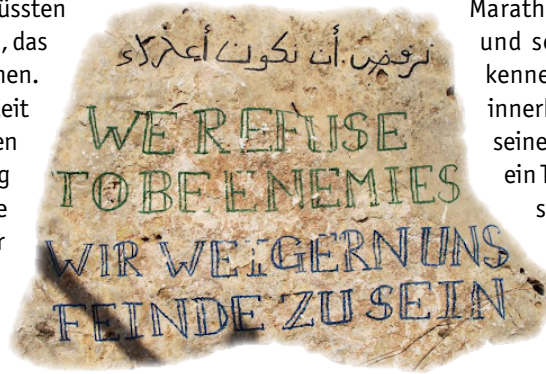 üssten
, das
nen.
eit
en
g
e
r
نرفض أن نكون أعداء
WE REFUSE
TO BE ENEMIES
WIR WEIGERN UNS
FEINDE ZU SEIN
Marath
und s
kenne
inner
seine
ein T
s